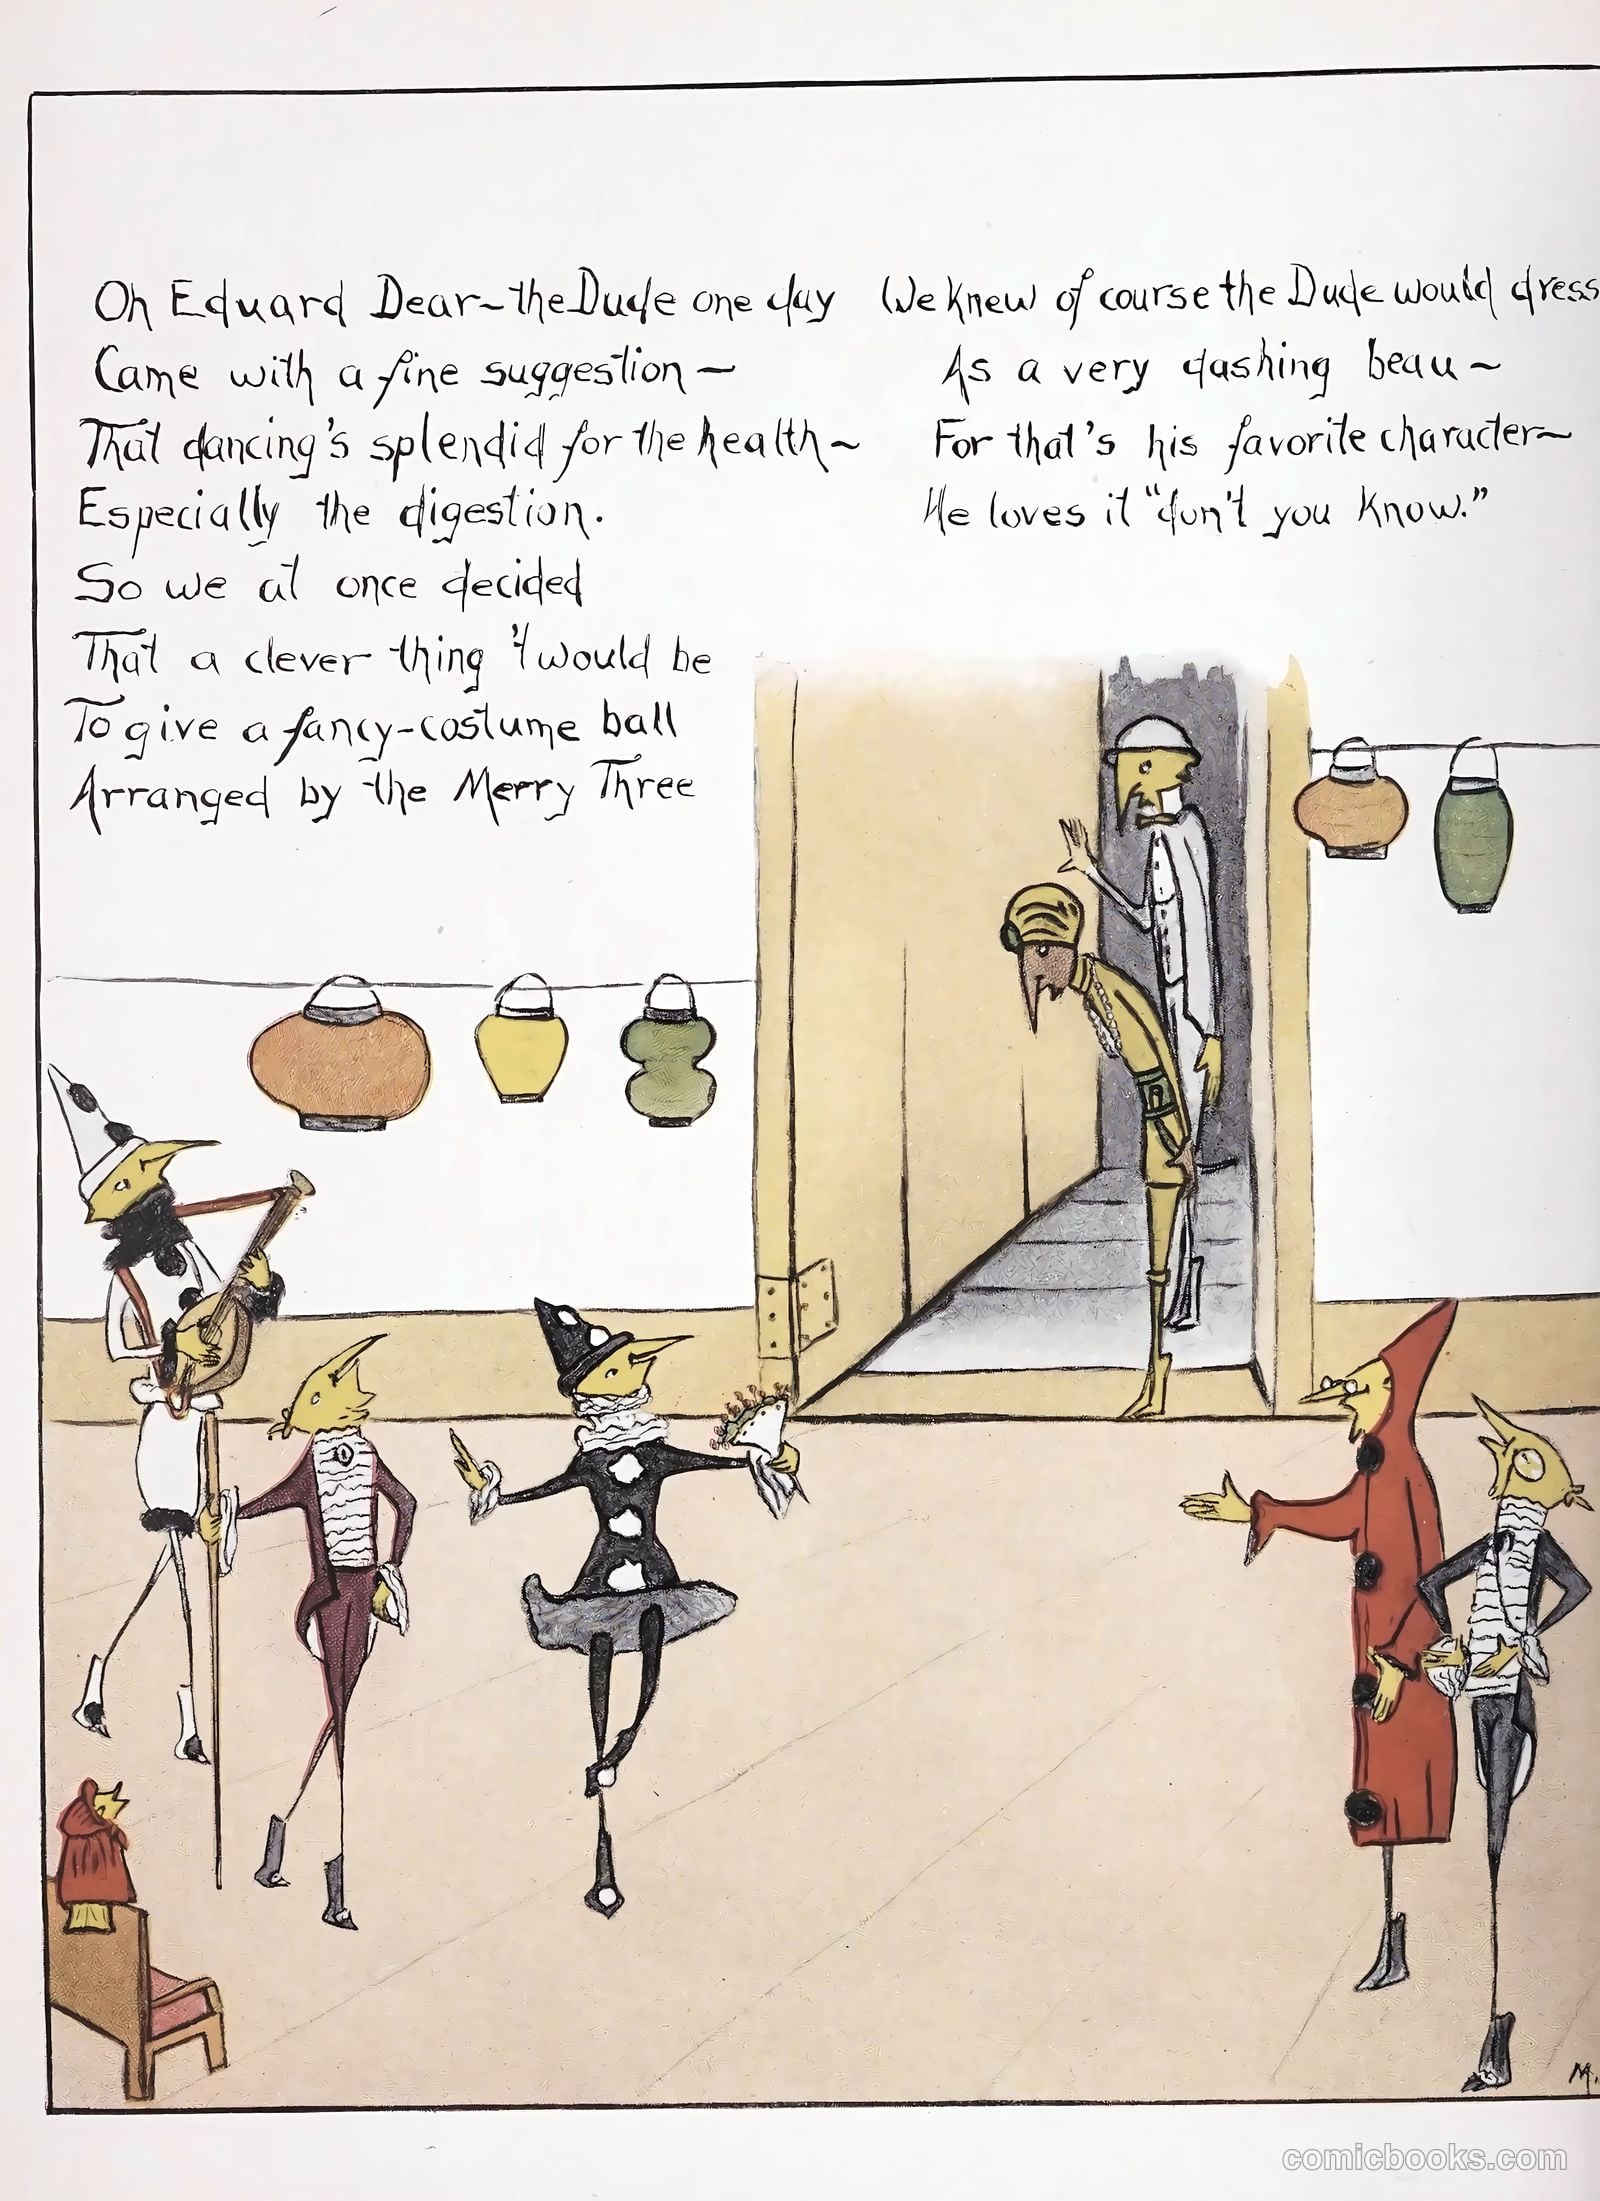 Oh Eduard Dear~the Dude one day
Came with a fine suggestion~
That dancing's splendid for the health~
Especially the digestion.
So we at once decided
That a clever thing 't would be
To give a fancy-costume ball
Arranged by the Merry Three
We knew of course the Dude would dress
As a very dashing beau~
For that's his favorite character~
He loves it "don't you know."
M.
comicbooks.com